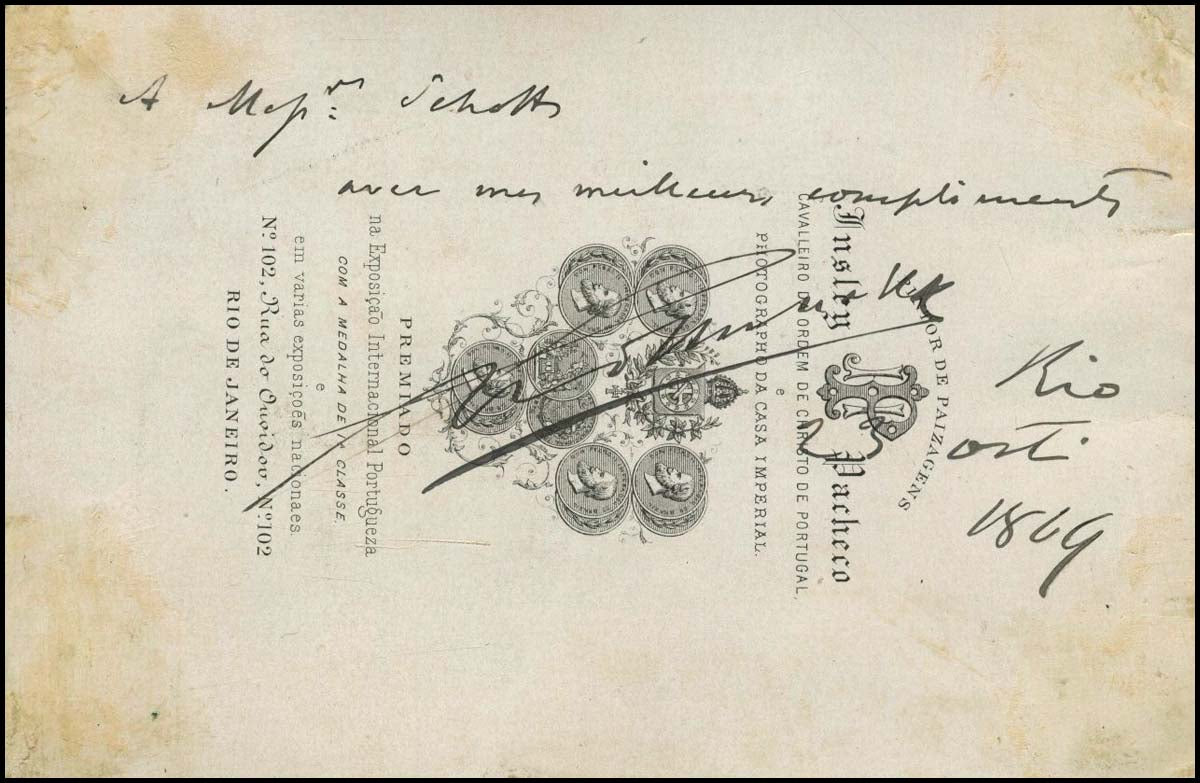 A Messrs: Schotts
avec mes meilleurs compliments
Rio
23
1869
PINTOR DE PAIZAGENS
Insley Pacheco
CAVALLEIRO DA ORDEM DE CHRISTO DE PORTUGAL,
e
PHOTOGRAPHO DA CASA IMPERIAL.
PREMIADO
na Exposição Internacional Portugueza
COM A MEDALHA DE 1ª CLASSE,
e
em varias exposições nacionaes.
Nº 102, Rua do Ouvidor, Nº 102
RIO DE JANEIRO.